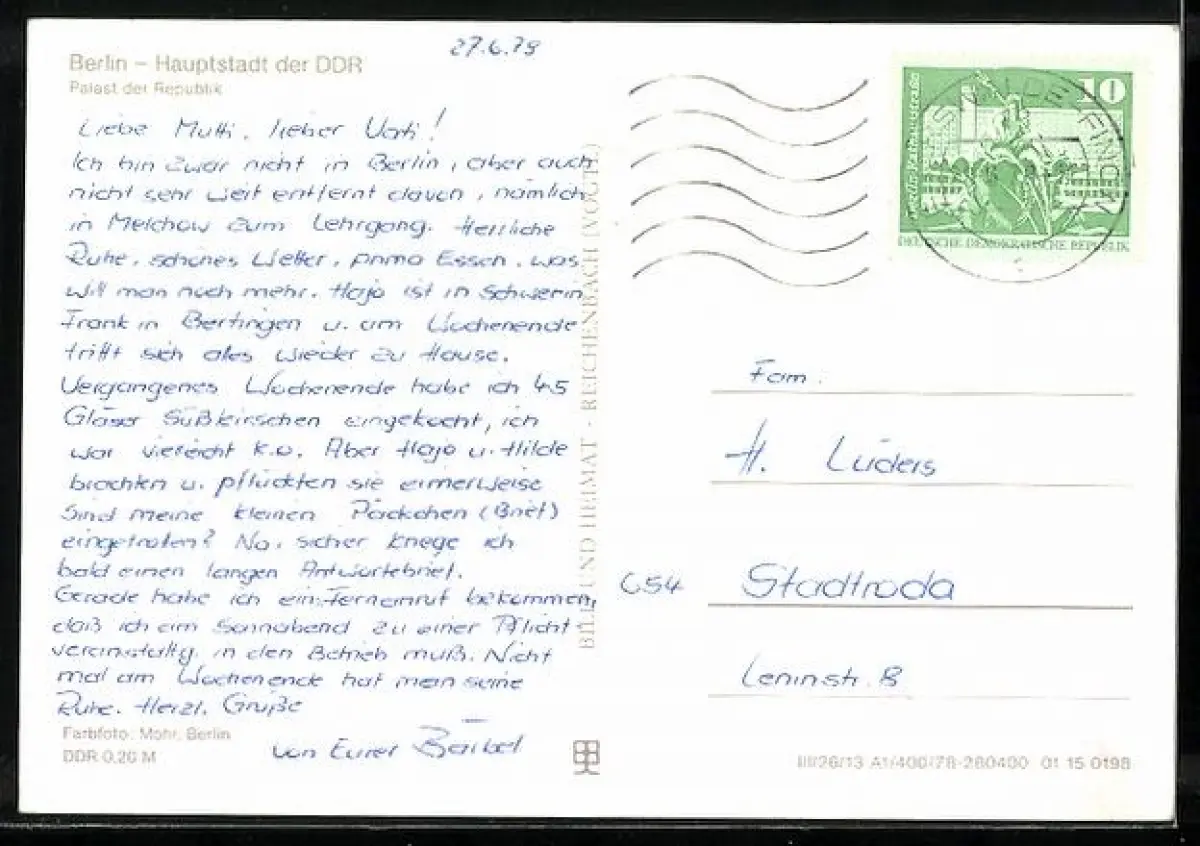 27.6.79
Berlin – Hauptstadt der DDR
Palast der Republik
Liebe Mutti, lieber Vati!
Ich bin zwar nicht in Berlin, aber auch
nicht sehr weit entfernt davon, nämlich
in Melchow zum Lehrgang. Herrliche
Ruhe, schönes Wetter, prima Essen, was
will man noch mehr. Hajo ist in Schwerin
Frank in Bertingen u. am Wochenende
trifft sich alles wieder zu Hause.
Vergangenes Wochenende habe ich 45
Gläser Süßkirschen eingekocht, ich
war vieleicht k.o. Aber Hajo u. Hilde
brachten u. pflückten sie eimerweise
Sind meine kleinen Päckchen (Brief)
eingetroffen? Na, sicher kriege ich
bald einen langen Antwortebrief.
Gerade habe ich ein Fernanruf bekommen,
daß ich am Sonnabend zu einer Pflicht-
veranstaltg. in den Betrieb muß. Nicht
mal am Wochenende hat man seine
Ruhe. Herzl. Grüße
von Eurer Bärbel
Farbfoto: Mohr, Berlin
DDR 0,20 M
BILD UND HEIMAT · REICHENBACH (VOGTL)
10
DEUTSCHE DEMOKRATISCHE REPUBLIK
Fam.
H. Lüders
654 Stadtroda
Leninstr. 8
III/26/13 A1/400/78-280400 01 15 0198